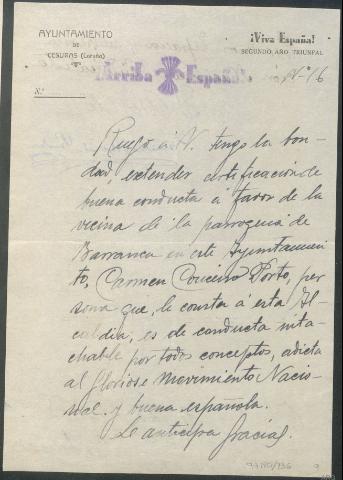 AYUNTAMIENTO
DE
CESURAS (Coruña)
¡Viva España!
SEGUNDO AÑO TRIUNFAL
¡Arriba España!
Nº 16
N.º
Ruego a V. tenga la bon-
dad, extender certificación de
buena conducta a favor de la
vecina de la parroquia de
Barranca en este Ayuntamien-
to, Carmen Couceiro Porto, per
sona que, le consta a esta Al-
caldia, es de conducta inta-
chable por todos conceptos, adicta
al Glorioso Movimiento Nacio-
nal y buena española.
Le anticipa gracias.